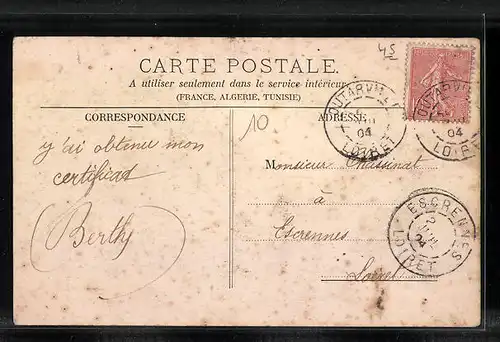 45
CARTE POSTALE.
A utiliser seulement dans le service intérieur
(FRANCE, ALGERIE, TUNISIE)
CORRESPONDANCE
ADRESSE
10
OUTARVILLE
04
LOIRET
04
LOIRET
y'ai obtenu mon
certificat
Berthe
Monsieur Chassinat
à
Escrennes
Loiret
ESCRENNES
04
LOIRET